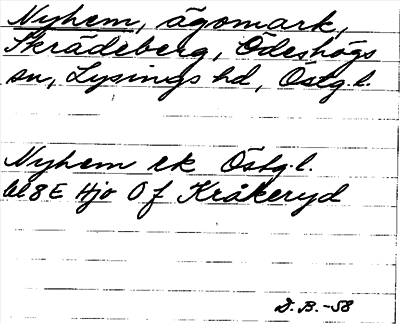 Nyhem, ägomark,
Skrädeberg, Ödeshögs
sn, Lysings hd, Östg.l.
Nyhem ek Östg.l.
bl 8 E Hjo Of Kråkeryd
D. B. -58